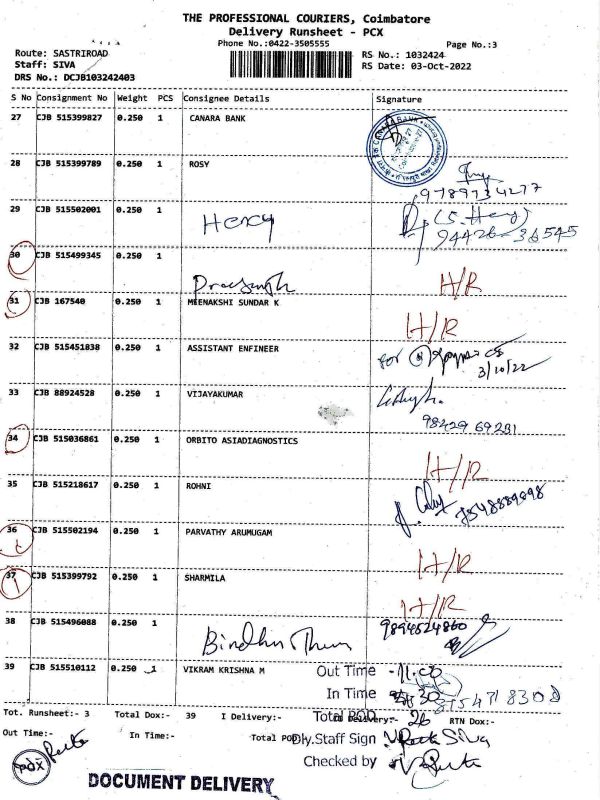 THE PROFESSIONAL COURIERS, Coimbatore
Delivery Runsheet - PCX
Phone No.:0422-3505555
Page No.:3
Route: SASTRIROAD
Staff: SIVA
DRS No.: DCJB103242403
RS No.: 1032424
RS Date: 03-Oct-2022
S No Consignment No Weight PCS Consignee Details Signature
27 CJB 515399827 0.250 1 CANARA BANK
28 CJB 515399789 0.250 1 ROSY
9789734277
29 CJB 515502001 0.250 1 Henry
(S. Henry)
94426-36545
30 CJB 515499345 0.250 1
H/R
31 CJB 167540 0.250 1 MEENAKSHI SUNDAR K
H/R
32 CJB 515451838 0.250 1 ASSISTANT ENFINEER
for
3/10/22
33 CJB 88924528 0.250 1 VIJAYAKUMAR
98429 69281
34 CJB 515036861 0.250 1 ORBITO ASIADIAGNOSTICS
H/R
35 CJB 515218617 0.250 1 ROHNI
36 CJB 515502194 0.250 1 PARVATHY ARUMUGAM
H/R
37 CJB 515399792 0.250 1 SHARMILA
H/R
38 CJB 515496088 0.250 1
9894524860
39 CJB 515510112 0.250 1 VIKRAM KRISHNA M
Out Time - 11.00
In Time
Tot. Runsheet:- 3 Total Dox:- 39 I Delivery:- Total POD - 26 RTN Dox:-
Out Time:- In Time:- Total POD
Dly.Staff Sign
Checked by
pdx
DOCUMENT DELIVERY